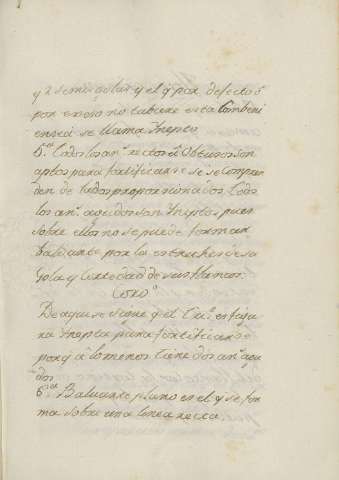 y 2 semigolas y el q̃ por defecto ó
por exceso no tubiere esta Combeni
encia se llama Ynepto.
5.ª Todos los an.s rectos ú Obtusos son
aptos para fortificarse si se compren
den de lados proporcionados. Todos
los an.s agudos son Yneptos, pues
sobre ellos no se puede formar
baluarte por la estreches de su
Gola y cortedad de sus flancos.
Coro.º
De aqui se sigue q̃ el es figu
ra Ynepta para fortificarse
porq̃ â lo menos tiene dos an.s agu
dos.
6.ª Baluarte plano es el q̃ se for
ma sobre una linea recta.